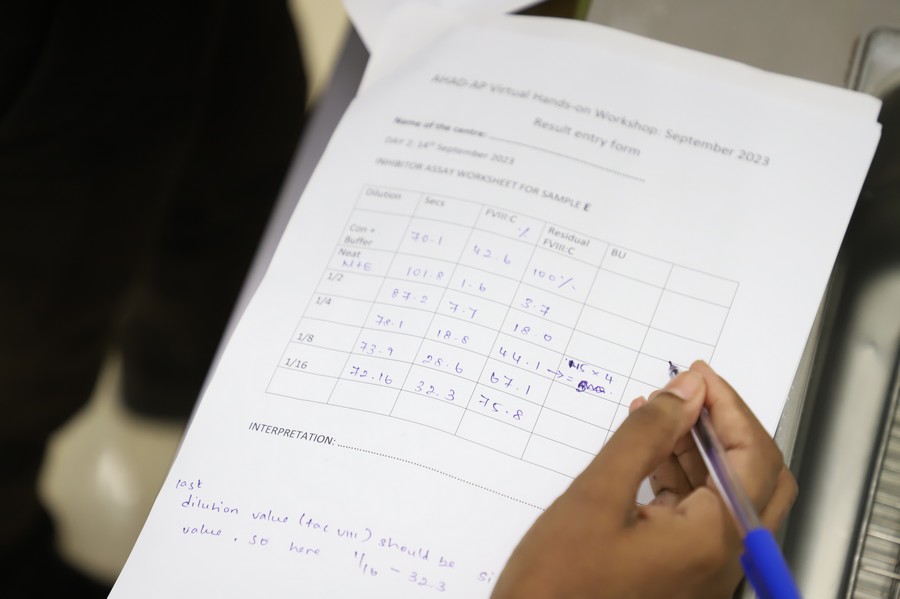 AHAD-AP Virtual Hands-on Workshop: September 2023
Result entry form
Name of the centre:
DAY 2: 14th September 2023
INHIBITOR ASSAY WORKSHEET FOR SAMPLE E
Dilution Secs FVIII:C % Residual FVIII:C BU
Con + Buffer 70.1 42.6 100%
Neat N+E 101.8 1.6 3.7
1/2 87.2 7.7 18.0
1/4 78.1 18.8 44.1 → × 4
1/8 73.9 28.6 67.1 =
1/16 72.16 32.3 75.8
INTERPRETATION:
last
dilution value (fac VIII) should be
value. so here 1/16 - 32.3